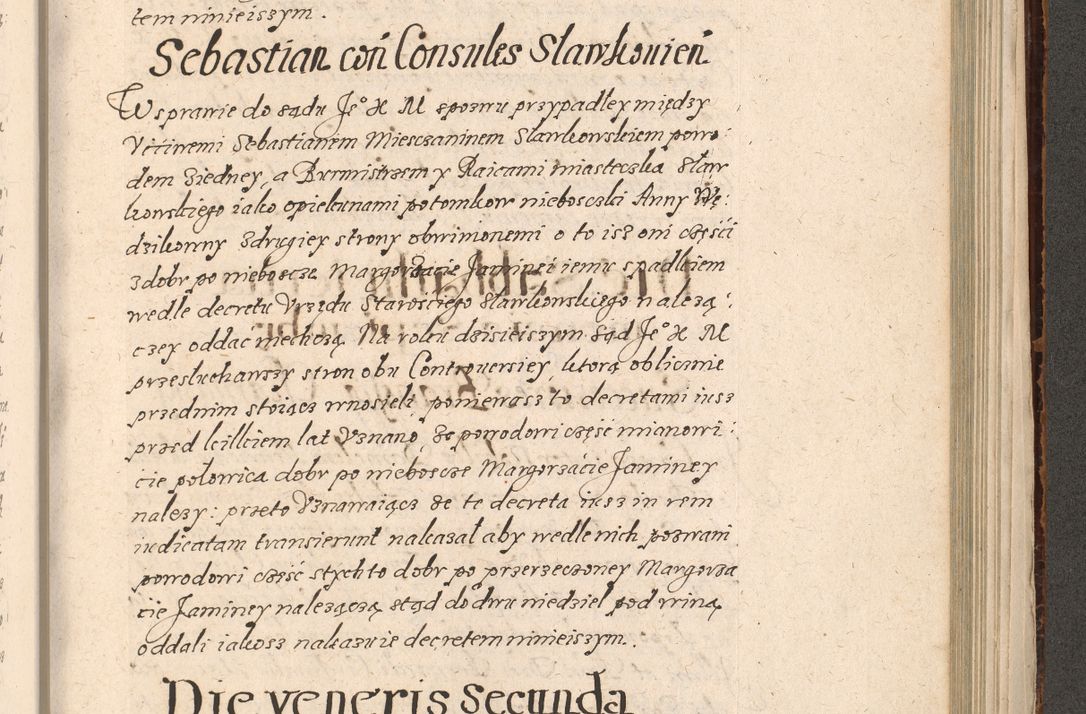 tem ninieiszym.
Sebastian con̄ Consules Slawkowień
W sprawie do sądu Je° X M z pozwu przypadłey między
Vććiwemi Sebastianem Miesczaninem Slawkowskiem powo:
dem z iedney, a Burmistrzem y Raicami miasteczka Sław
kowskiego iako opiekunami potomkow niebosczki Anny Wę:
dzikowny z drugiey strony obwinionemi o to isz oni części
z dobr po nieboscze Margorzacie Jaminei iemu spadkiem
wedle decretu Vrzędu Starościego Slawkowskiego należą:
czey oddac niechczą. Na roku dzisieiszym Sąd Je° X M
przesłuchawszy stron obu Controuersiey, ktorą oblicznie
przed nim stoiącz wnosieli, poniewasz to decretami iusz
przed kilkiem lat Vznano, że powodowi część mianowi:
cie połowica dobr po niebosczce Margorzacie Jaminey
należy: przeto Vznawaiącz że te decreta iusz in rem
iudicatam transierunt nakazał aby wedle nich pozwani
powodowi część z tych to dobr po przerzeczoney Margorza
cie Jaminey należączą stąd do dwu niedziel pod winą
oddali iakosz nakazuie decretem ninieiszym.
Die veneris secunda